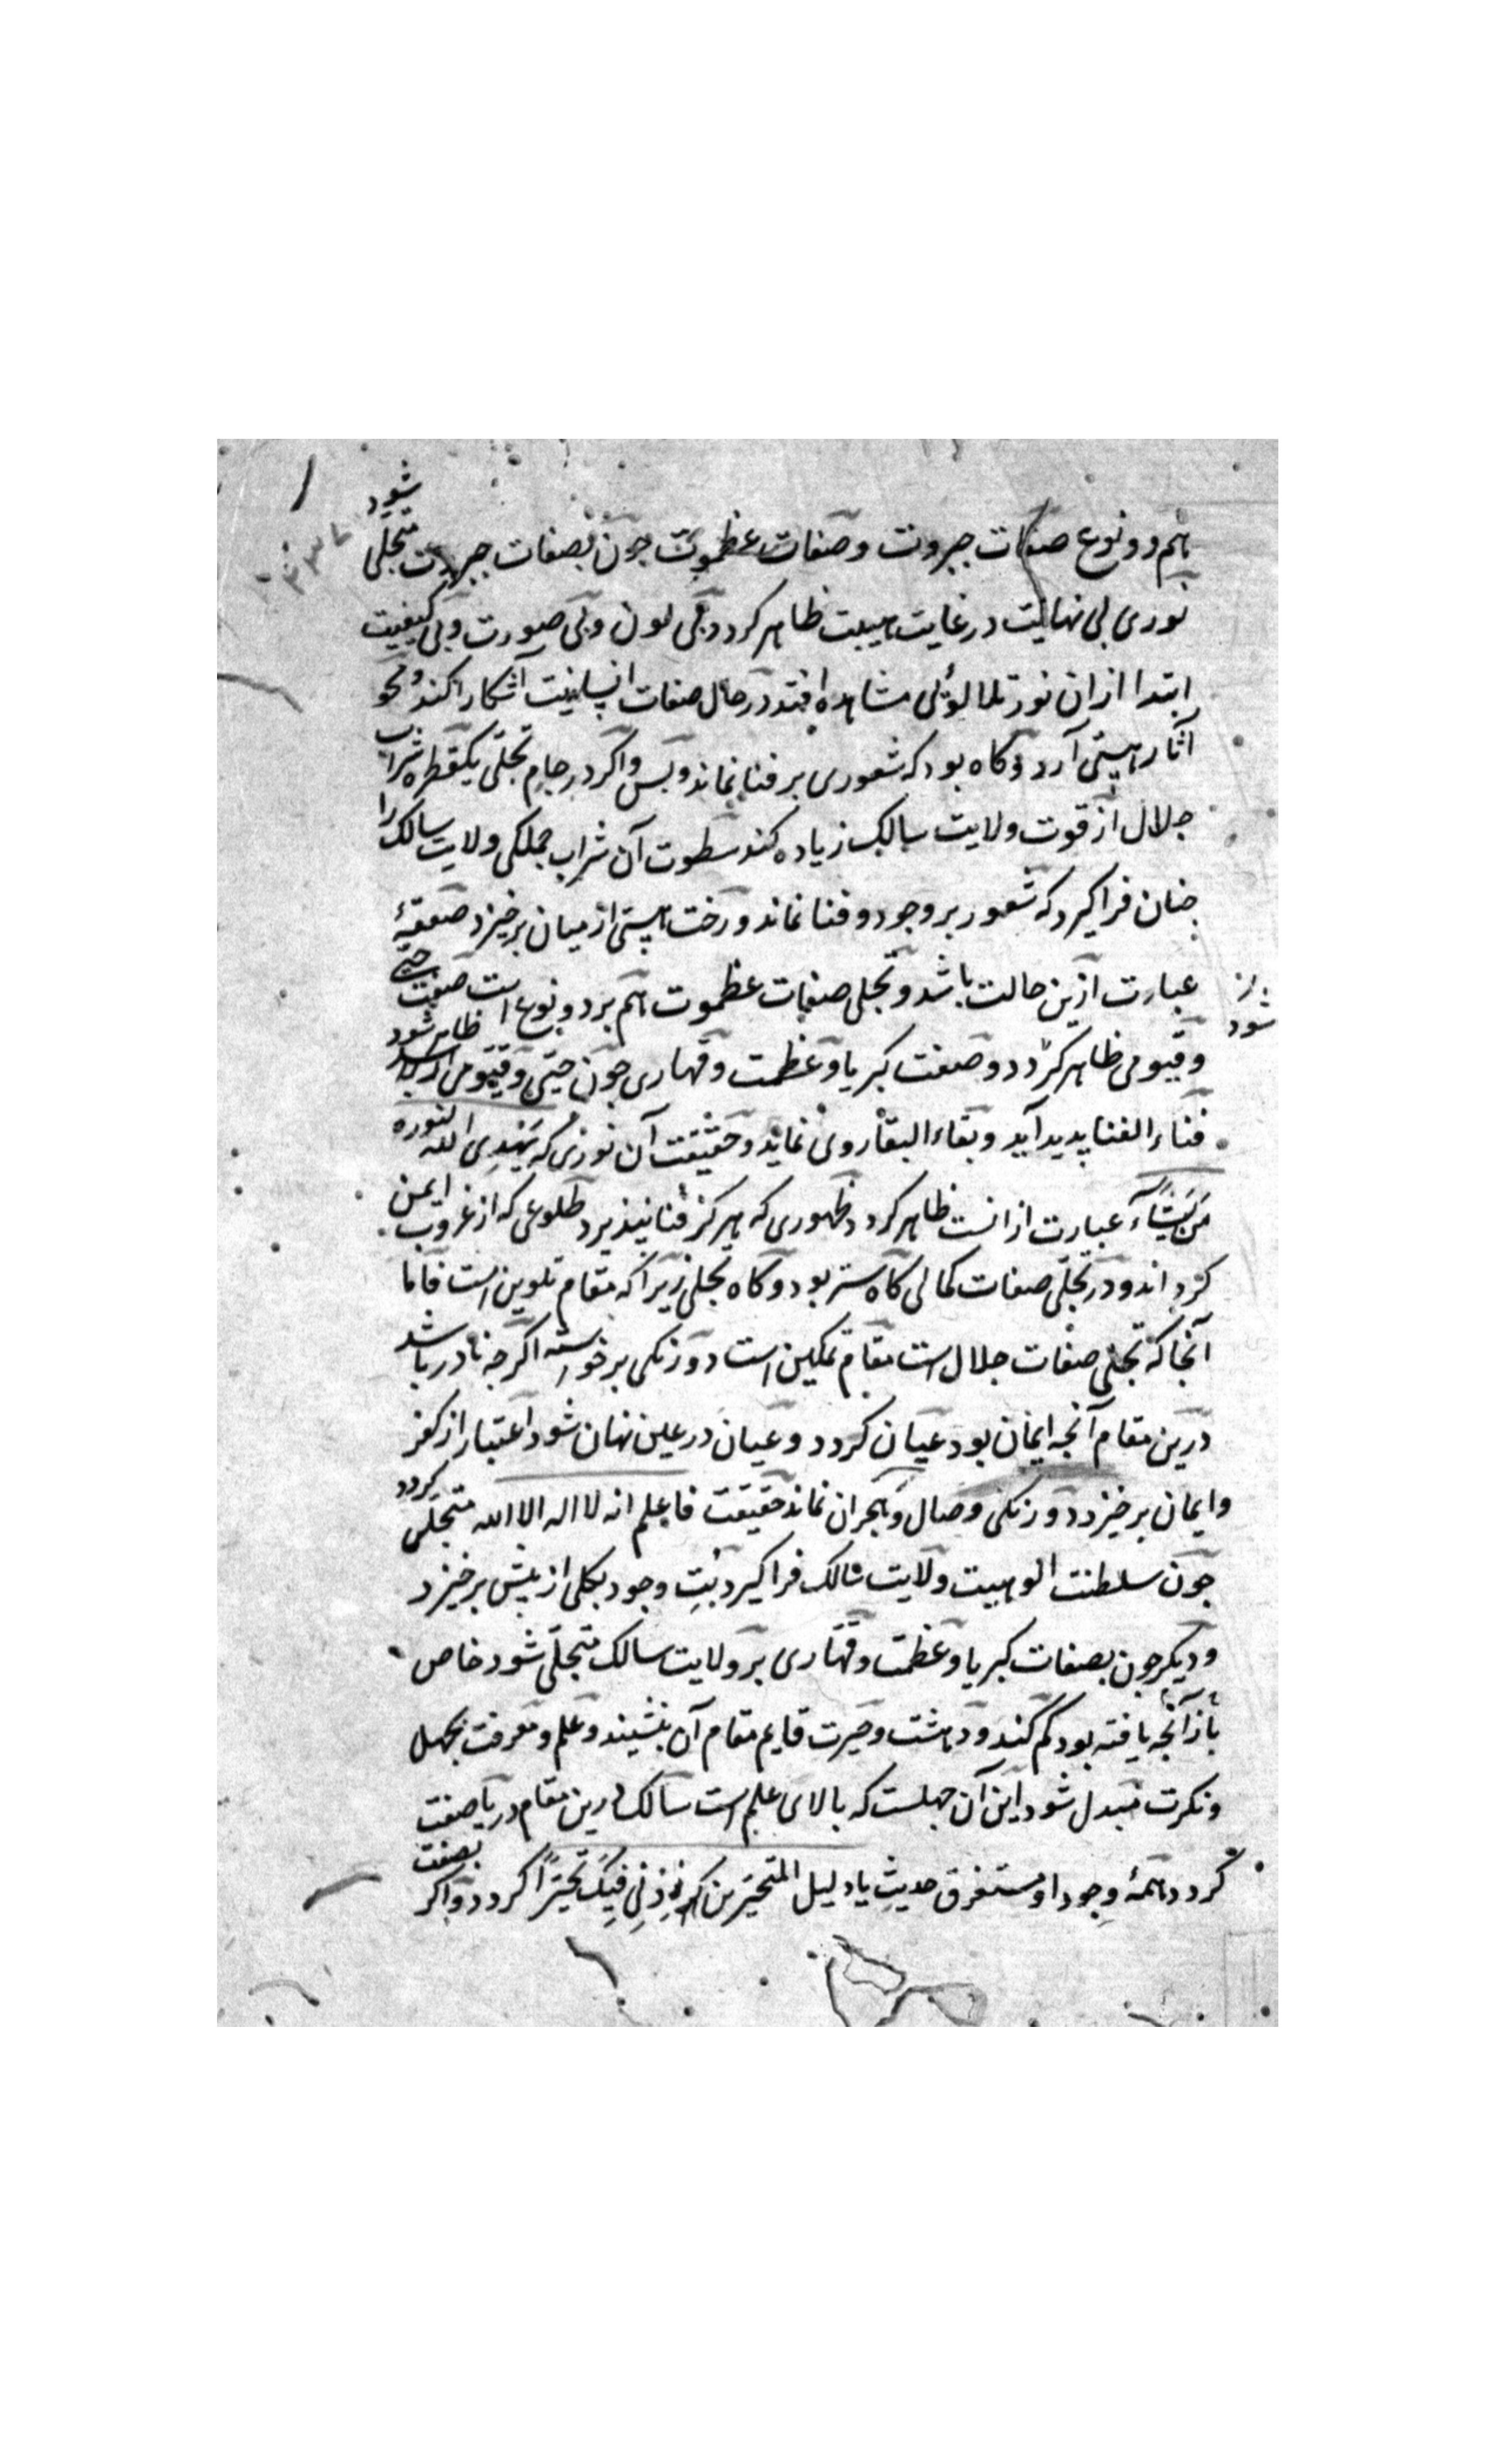 هم دو نوع صفات جبروت وصفات عظموت جون بصفات جبروت متجلی شود
نوری بی نهایت در غایت هیبت ظاهر کردد بی لون وبی صورت وبی کیفیت
ابتدا ازان نور تلالوئی مشاهده افتد در حال صفات انسانیت آشکارا کند ومحو
آثار هستی آرد وکاه بود که شعوری بر فنا نماند وبس واکر در جام تجلی یکقطره شراب
جلال از قوت ولایت سالک زیاده کند سطوت آن شراب جملکی ولایت سالک را
جنان فرا کیرد که شعور بر وجود وفنا نماند ورخت هستی از میان برخیزد صعقهٔ
عبارت ازین حالت باشد وتجلی صفات عظموت هم بر دو نوع است صفت حیی
وقیومی ظاهر کردد وصفت کبریا وعظمت وقهاری جون حیی وقیومی ظاهر شود
فناء الفنا پدید آید وبقاء البقا روی نماید وحقیقت آن نوری که یهدی الله لنوره
من یشآء عبارت ازانست ظاهر کردد ظهوری که هرکز فنا نپذیرد طلوعی که از غروب ایمن
کردد اند ودر تجلی صفات کمالی کاه ستر بود وکاه تجلی زیرا که مقام تلوین است فاما
آنجا که تجلی صفات جلال است مقام تمکین است دورنکی برخواسته اکرجه نادر باشد
درین مقام آنجه ایمان بود عیان کردد وعیان در عین نهان شود اعتبار از کفر
وایمان برخیزد دورنکی وصال وهجران نماند حقیقت فاعلم انه لا اله الا الله متجلی کردد
جون سلطنت الوهیت ولایت سالک فرا کیرد بت وجود بکلی از پیش برخیزد
ودیکر جون بصفات کبریا وعظمت وقهاری بر ولایت سالک متجلی شود خاص
باز آنجه یافته بود کم کند ودهشت وحیرت قایم مقام آن بنشیند وعلم ومعرفت بجهل
ونکرت مبدل شود این آن جهلست که بالای علم است سالک درین مقام دریا صفت
کردد همهٔ وجود او مستغرق حدیث یا دلیل المتحیرین زدنی فیک تحیرا کردد واکر بصفت
شود